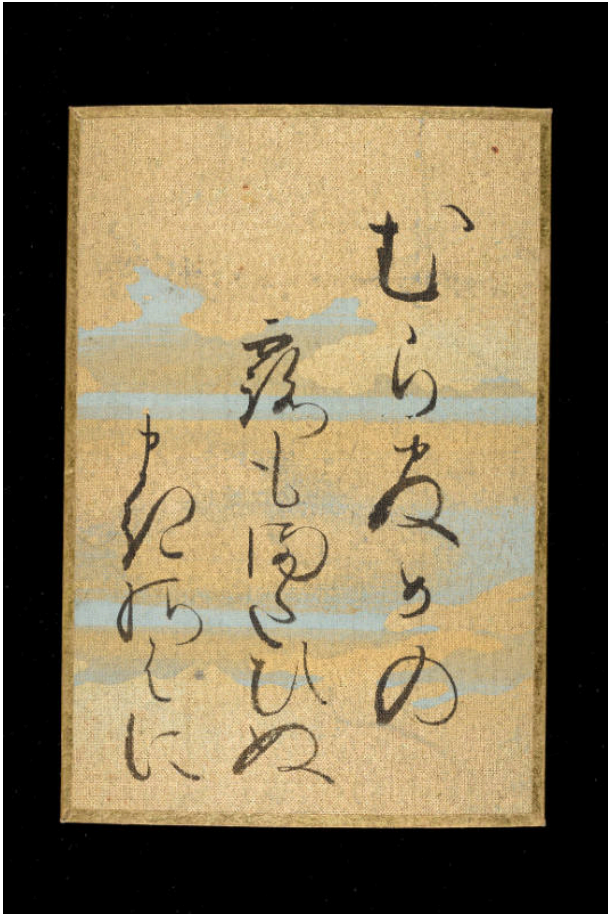 むらさめの
露もまたひぬ
まきのはに